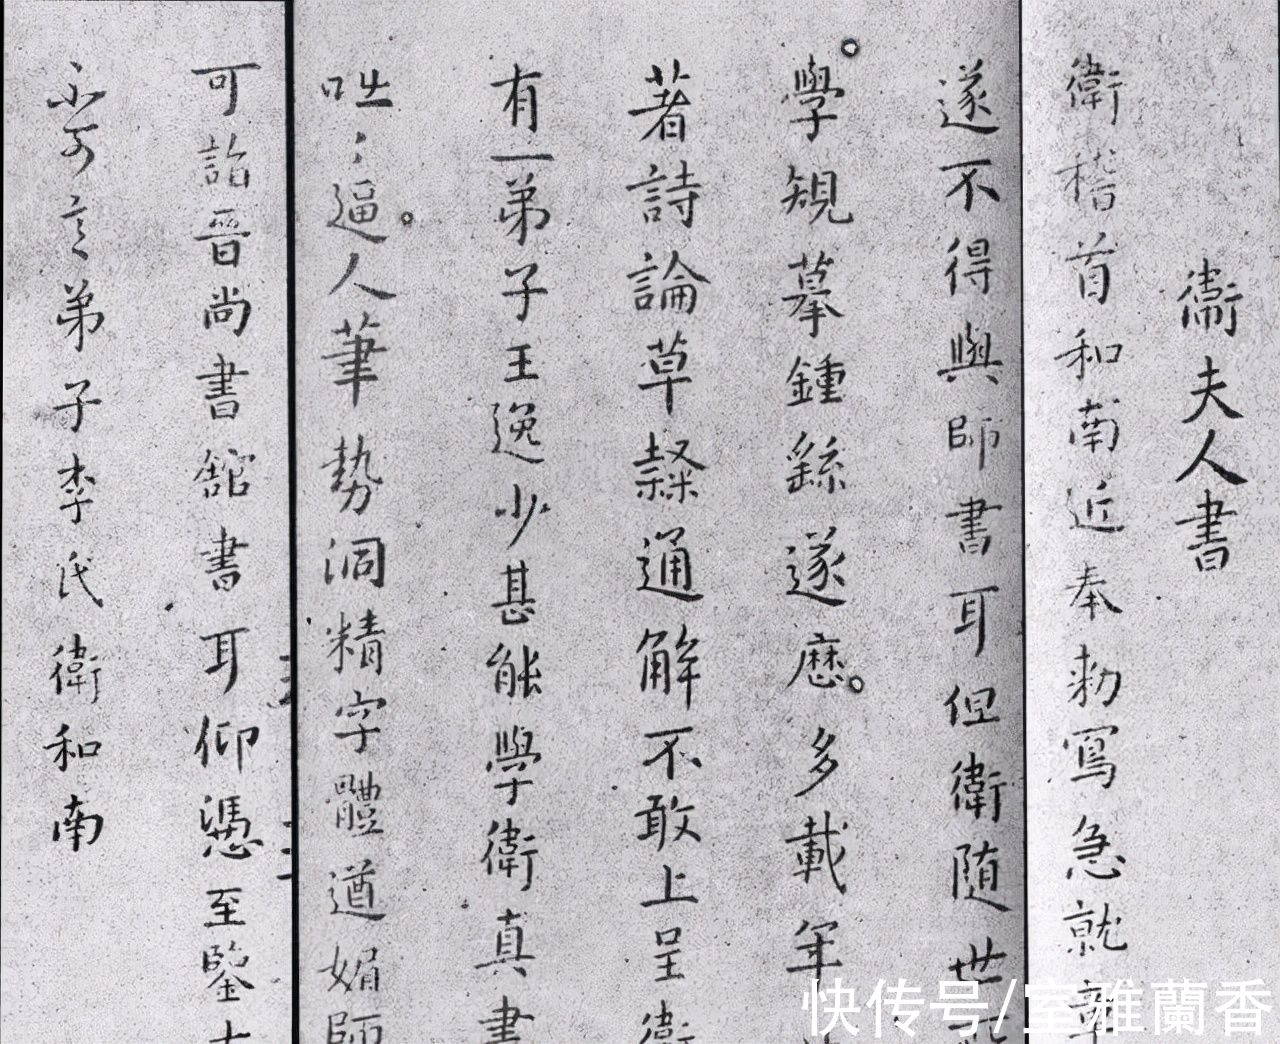 衛夫人書
衛稽首和南近奉勅寫急就章
遂不得與師書耳但衛随世
學規摹鍾繇遂歷多載年
著詩論草隸通解不敢上呈衛
有一弟子王逸少甚能學衛真書
咄〻逼人筆勢洞精字體遒媚師
可詣晉尚書館書耳仰憑至鑒大
不可言弟子李氏衛和南
快传号/室雅蘭香